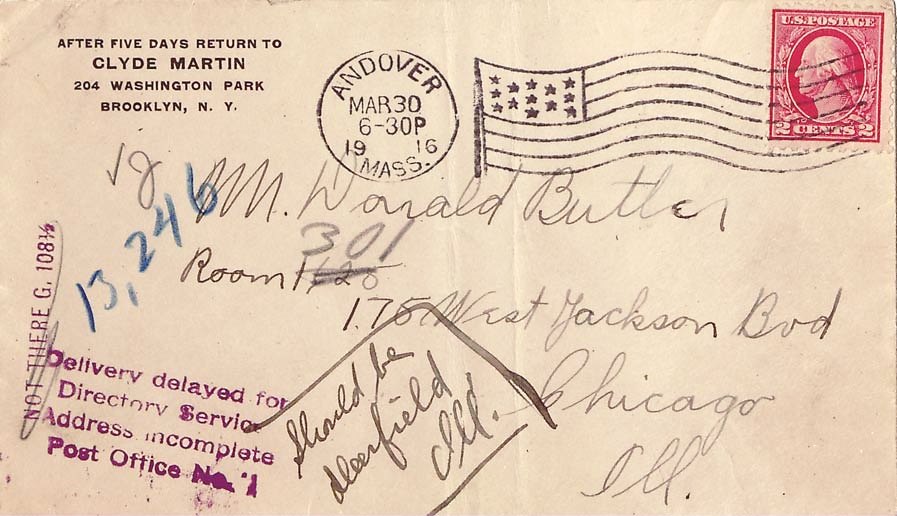 AFTER FIVE DAYS RETURN TO
CLYDE MARTIN
204 WASHINGTON PARK
BROOKLYN, N. Y.
ANDOVER
MAR 30
6-30P
19 16
MASS.
U.S. POSTAGE
2 CENTS 2
Mr. Donald Butler
13,246
301
Room 1125
175 West Jackson Bvd
Chicago
Ill.
NOT THERE G. 108½
Delivery delayed for
Directory Service
Address incomplete
Post Office No. 1
Should be
Deerfield
Ill.